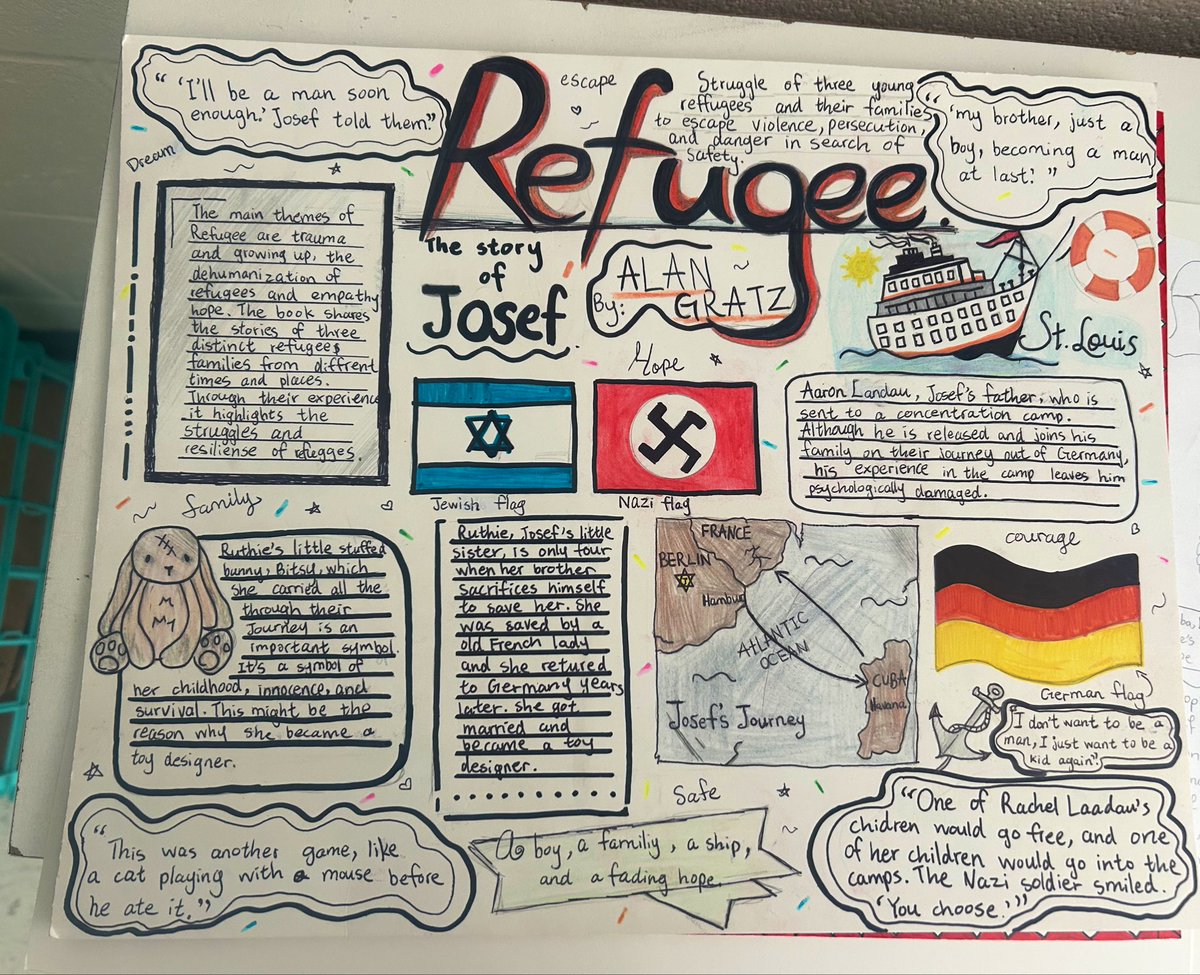 “ 'I'll be a man soon
enough.' Josef told them.”
Dream
escape
Refugee.
Struggle of three young
reffugees and their families
to escape violence, persecution,
and danger in search of
safety.
“ 'my brother, just a
boy, becoming a man
at last! ”
The main themes of
Refugee are trauma
and growing up, the
dehumanization of
refugees and empathy
hope. The book shares
the stories of three
distinct refugees
families from diffrent
times and places.
Through their experience
it highlights the
struggles and
resiliense of refugges.
The story
of
Josef
By: ALAN
GRATZ
St. Louis
Hope
Jewish flag
Nazi flag
Aaron Landau, Josef's father, who is
sent to a concentration camp.
Although he is released and joins his
family on their journey out of Germany,
his experience in the camp leaves him
psychologically damaged.
family
Ruthie's little stuffed
bunny, Bitsy, which
she carried all the
through their
Journey is an
important symbol.
It's a symbol of
her childhood, innocence, and
survival. This might be the
reason why she became a
toy designer.
Ruthie, Josef's little
sister, is only four
when her brother
sacrifices himself
to save her. She
was saved by a
old French lady
and she retured
to Germany years
later. she got
married and
became a toy
designer.
FRANCE
BERLIN
Hamburg
ATLANTIC
OCEAN
CUBA
Havana
Josef's Journey
courage
German flag
“I don't want to be a
man, I just want to be a
kid again”
Safe
“This was another game, like
a cat playing with a mouse before
he ate it.”
A boy, a familiy, a ship,
and a fading hope.
“One of Rachel Laadaw's
chidren would go free, and one
of her children would go into the
camps. The Nazi soldier smiled.
'You choose.'”